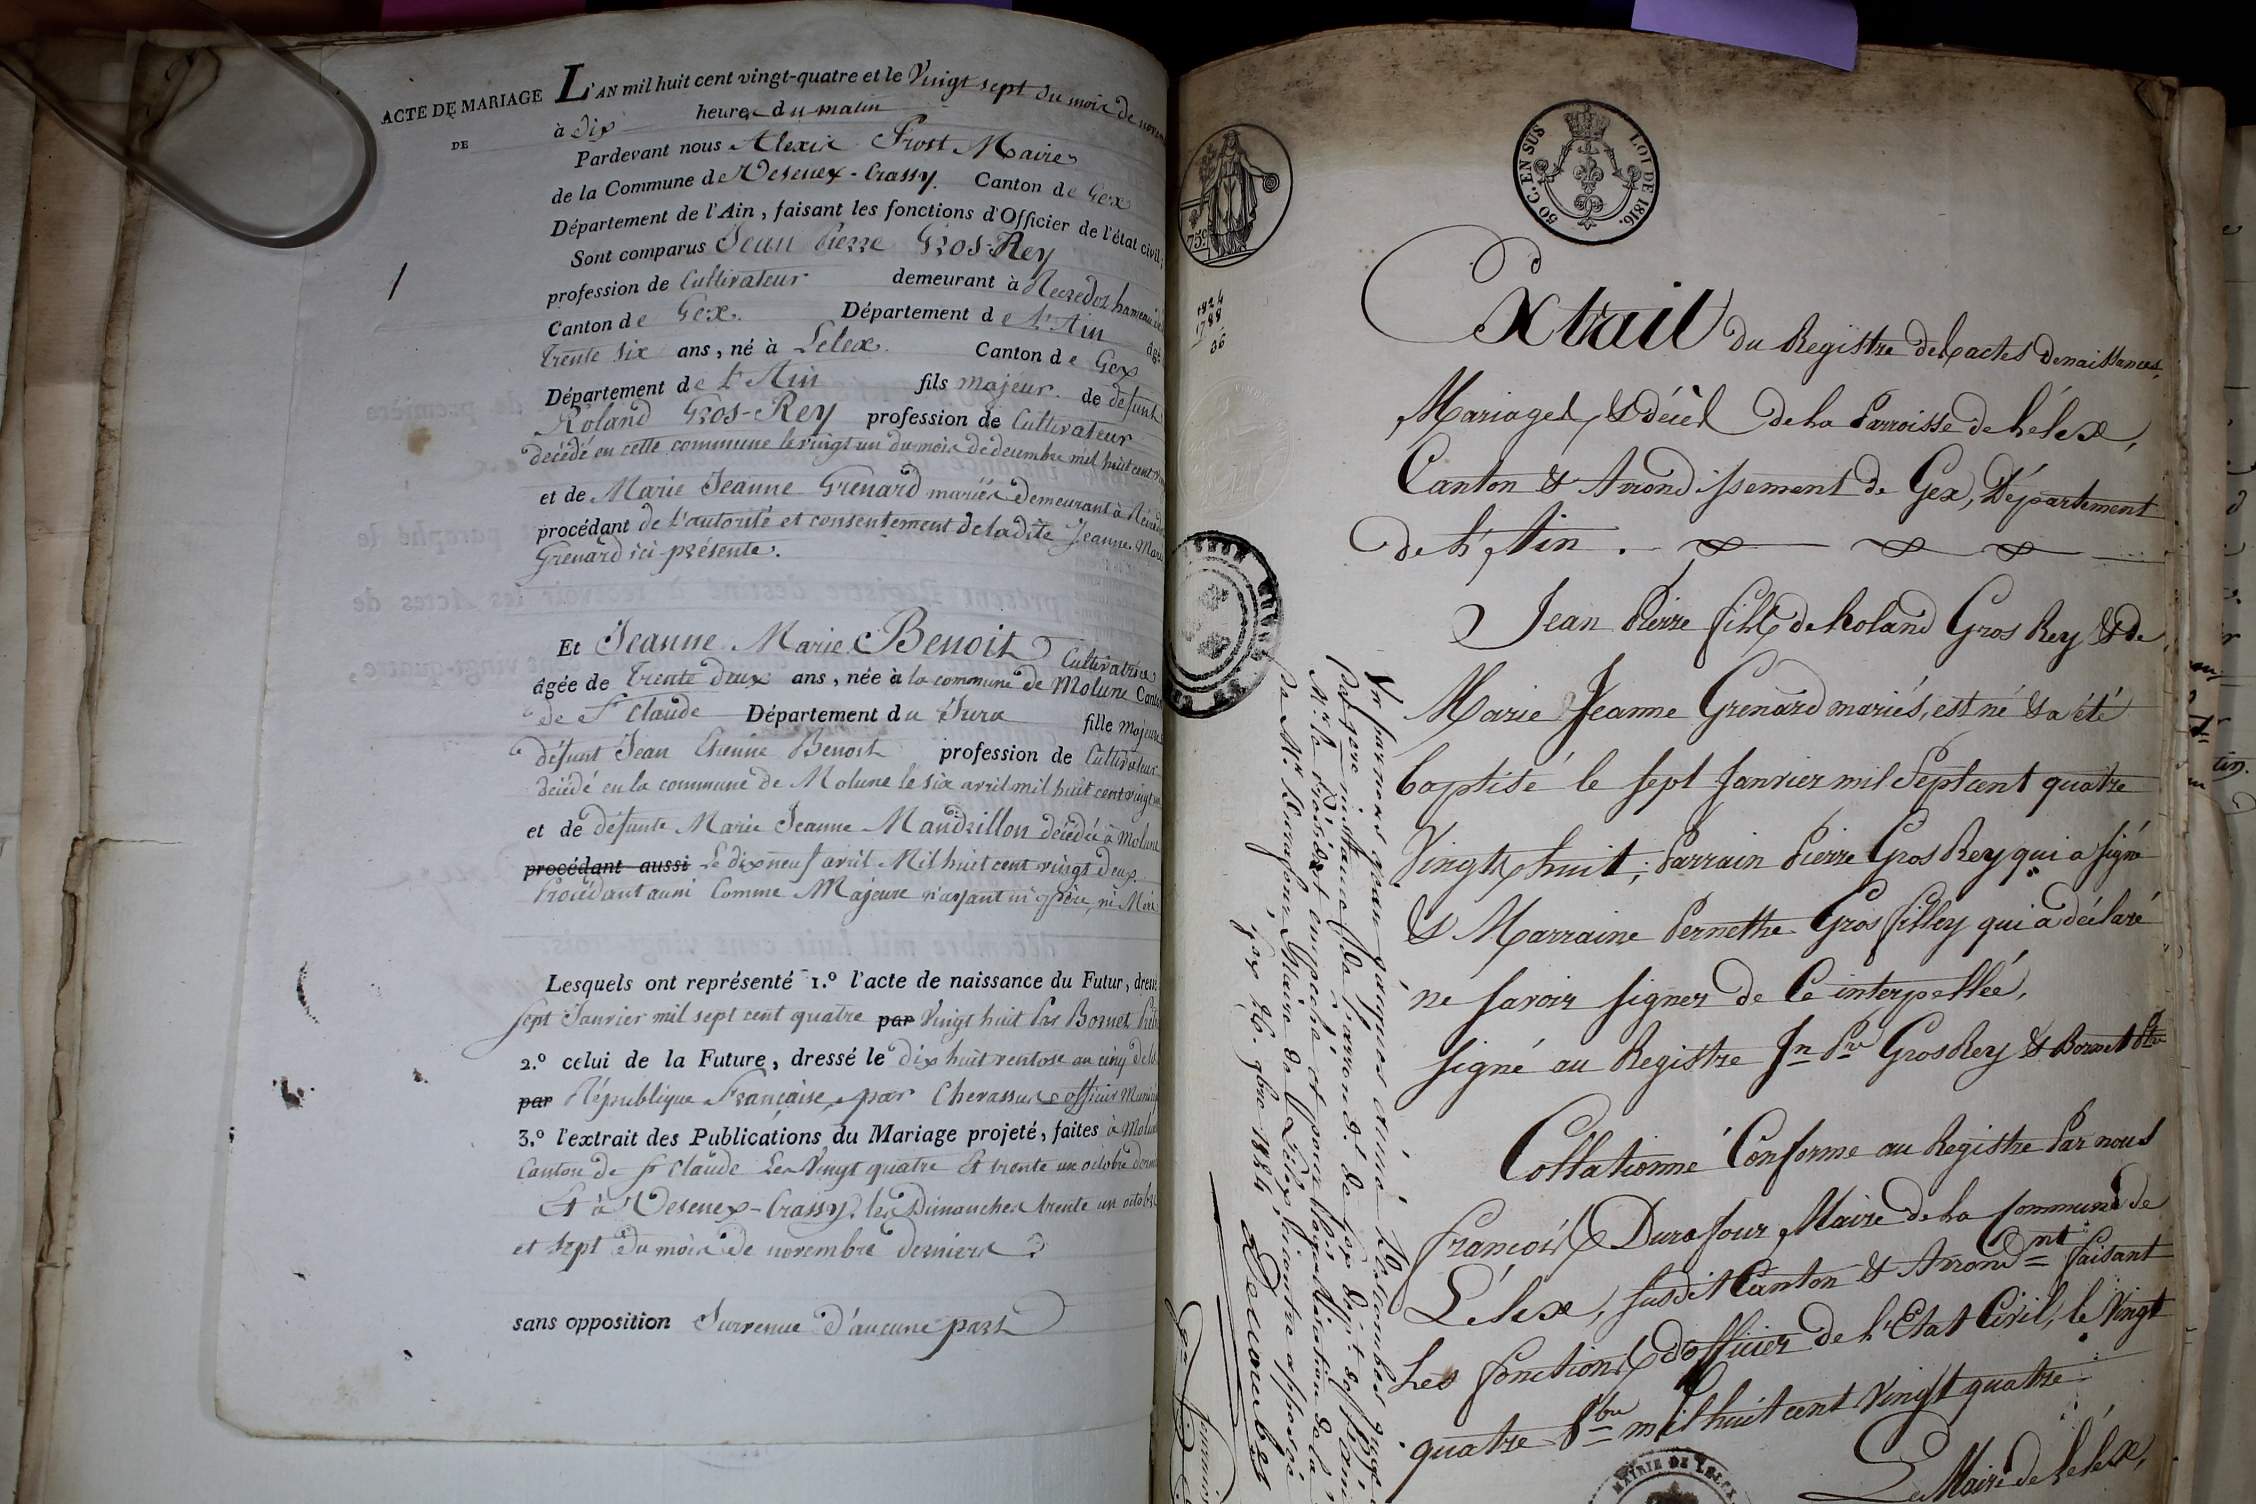 ACTE DE MARIAGE
DE
L'AN mil huit cent vingt-quatre et le Vingt sept du mois de novem
à Dix heures du matin
Pardevant nous Alexis Prost Maire
de la Commune de Vesenex-Crassy. Canton de Gex
Département de l'Ain, faisant les fonctions d'Officier de l'état civil;
Sont comparus Jean Pierre Gros-Rey
profession de Cultivateur demeurant à hameau
Canton de Gex. Département de L'Ain âgé
trente six ans, né à Lelex. Canton de Gex
Département de L'Ain fils majeur. de défunt
Roland Gros-Rey profession de Cultivateur
décédé en cette commune le vingt un du mois de décembre mil huit cent
et de Marie Jeanne Grenard mariés demeurant à
procédant de l'autorité et consentement de ladite Jeanne Marie
Grenard ici présente.
Et Jeanne Marie Benoit Cultivatrice
âgée de trente deux ans, née à la commune de Molune Canton
de St Claude Département du Jura fille majeure
défunt Jean Etienne Benoit profession de Cultivateur
décédé en la commune de Molune le six avril mil huit cent vingt
et de défunte Marie Jeanne Mandrillon décédée à Molune
procédant aussi Le dix neuf avril Mil huit cent vingt deux.
Procédant aussi Comme Majeure n'ayant ni père, ni Mère
Lesquels ont représenté 1.º l'acte de naissance du Futur, dressé
sept Janvier mil sept cent quatre par Vingt huit Par Bornet
2.º celui de la Future, dressé le dix huit ventose an cinq de la
par République Française, par Chevassus officier Munici
3.º l'extrait des Publications du Mariage projeté, faites à Molune
Canton de St Claude Les Vingt quatre Et trente un octobre dern
Et à Vesenex-Crassy, les Dimanches trente un octobre
et sept du mois de novembre derniers
sans opposition Survenue d'aucune part
75c
50 C. EN SUS
LOI DE 1816.
1824
1788
36
Extrait du Registre des actes de naissances,
Mariages, & décès de la Parroisse de Lélex,
Canton & Arrondissement de Gex, Département
de L'Ain.
Jean Pierre fils de Roland Gros Rey & de
Marie Jeanne Grenard mariés, est né & a été
baptisé le sept Janvier mil Sept cent quatre
Vingt huit; Parrain Pierre Gros Rey qui a signé
& Marraine Pernette Gros filley qui a déclaré
ne savoir signer de ce interpellée,
signé au Registre Jn Pre GrosRey & Bornet Ptre
Collationné Conforme au Registre Par nous
François Durafour Maire de la Commune de
Lélex, susdit Canton & Arrondnt faisant
Les fonctions d'officier de L'Etat Civil, le Vingt
quatre 8bre mil huit cent Vingt quatre
Le Maire de Lelex,
MAIRIE DE LELEX
Vu par nous
première instance de l'arrondt de Gex dépt de l'Ain
Mr le Présidt empeché et pour légalisation de la
de Mr Durafour Maire de Lélex, ci contre apposée
Gex 26. 9bre 1824